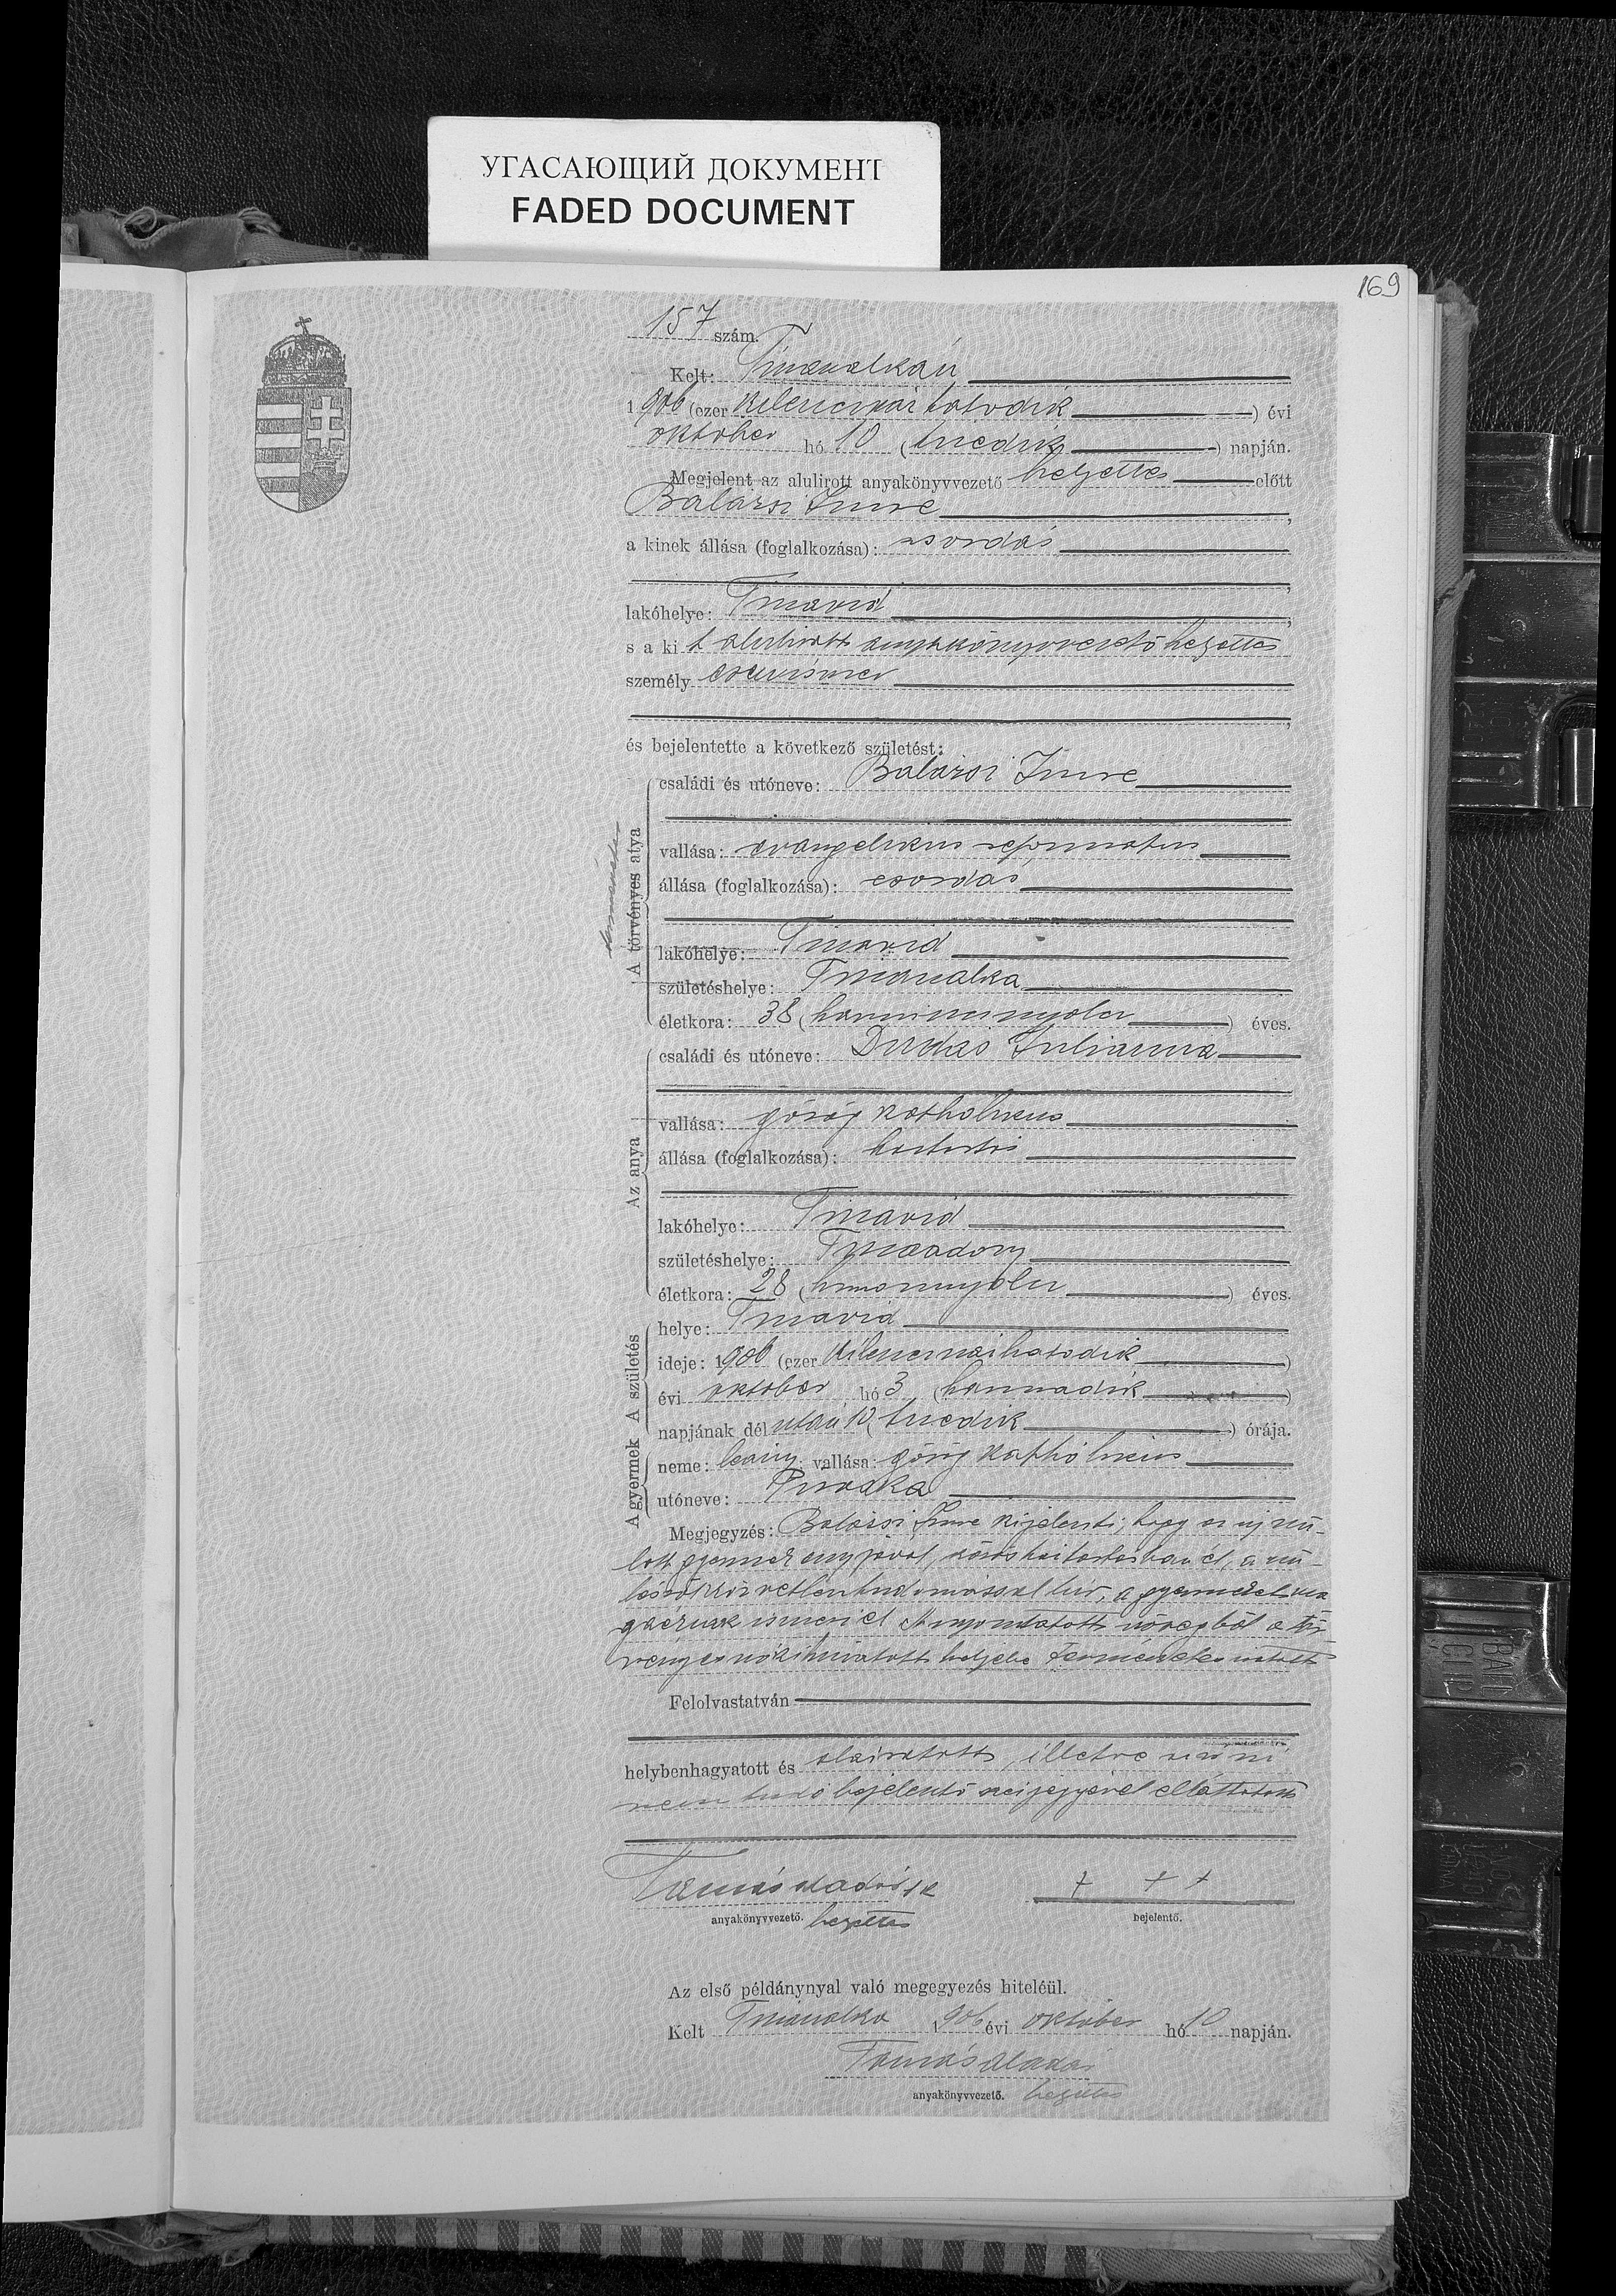 УГАСАЮЩИЙ ДОКУМЕНТ
FADED DOCUMENT
169
157 szám.
Kelt: Tiszasalkán
1906 (ezer kilencszáz hatodik) évi
október hó 10 (tizedik) napján.
Megjelent az alulirott anyakönyvvezető helyettes előtt
Balázsi Imre,
a kinek állása (foglalkozása): csordás
lakóhelye: Tiszavid,
s a kit alulírott anyakönyvvezető helyettes
személy esen ismer
és bejelentette a következő születést:
természetes
A törvényes atya
családi és utóneve: Balázsi Imre
vallása: evangelikus reformatus
állása (foglalkozása): csordás
lakóhelye: Tiszavid
születéshelye: Tiszasalka
életkora: 38 (harmincnyolc) éves.
Az anya
családi és utóneve: Dudás Julianna
vallása: görög katholikus
állása (foglalkozása): háztartás
lakóhelye: Tiszavid
születéshelye: Tiszaadony
életkora: 28 (huszonnyolc) éves.
A születés
helye: Tiszavid
ideje: 1906 (ezer kilencszázhatodik)
évi október hó 3 (harmadik)
napjának dél után 10 (tizedik) órája.
A gyermek
neme: leány vallása: görög katholikus
utóneve: Piroska
Megjegyzés: Balázsi Imre kijelenti, hogy az ujszü-
lött gyermek anyjával, közös háztartásban él, a szü-
lésről közvetlen tudomással bir, a gyermeket ma
gáénak ismeri el A nyomtatott szövegből a tör
vényes szó kihuzatott helyébe természetes iratott
Felolvastatván
helybenhagyatott és aláiratott, illetve irni
nem tudó bejelentő kézjegyével elláttatott
Tamás Aladár sk
anyakönyvvezető. helyettes
+ + +
bejelentő.
Az első példánynyal való megegyezés hiteléül.
Kelt Tiszasalka 1906 évi október hó 10 napján.
Tamás Aladár
anyakönyvvezető. helyettes